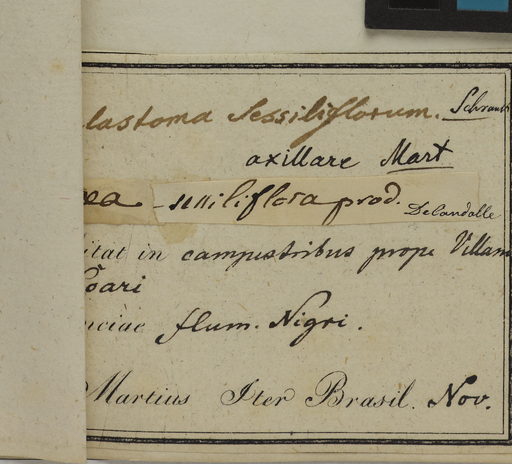 lastoma sessiliflorum. Schrank
axillare Mart
ea sessiliflora prod. Decandolle
itat in campestribus prope Villam
Coari
nciae flum. Nigri.
Martius Iter Brasil. Nov.